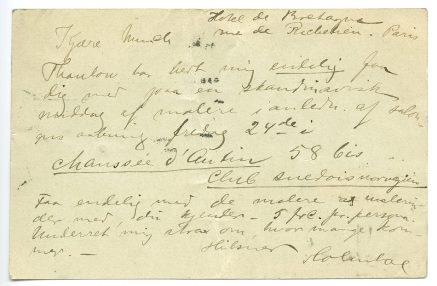 Hotel de Bretagne
rue de Richelieu, Paris
Kjære Munch
Thaulow har bedt mig endelig faa
dig med paa en skandinavisk
middag af malere i anledn. af salon-
gens aabning, fredag 24de i
Chaussée d'Antin 58 bis
Club suedois norvegien
Faa endelig med de malere og malerin-
der med, du kjender. - 5 frc. pr. person.
Underret mig strax om, hvor mange kom-
mer. -
Hilsner